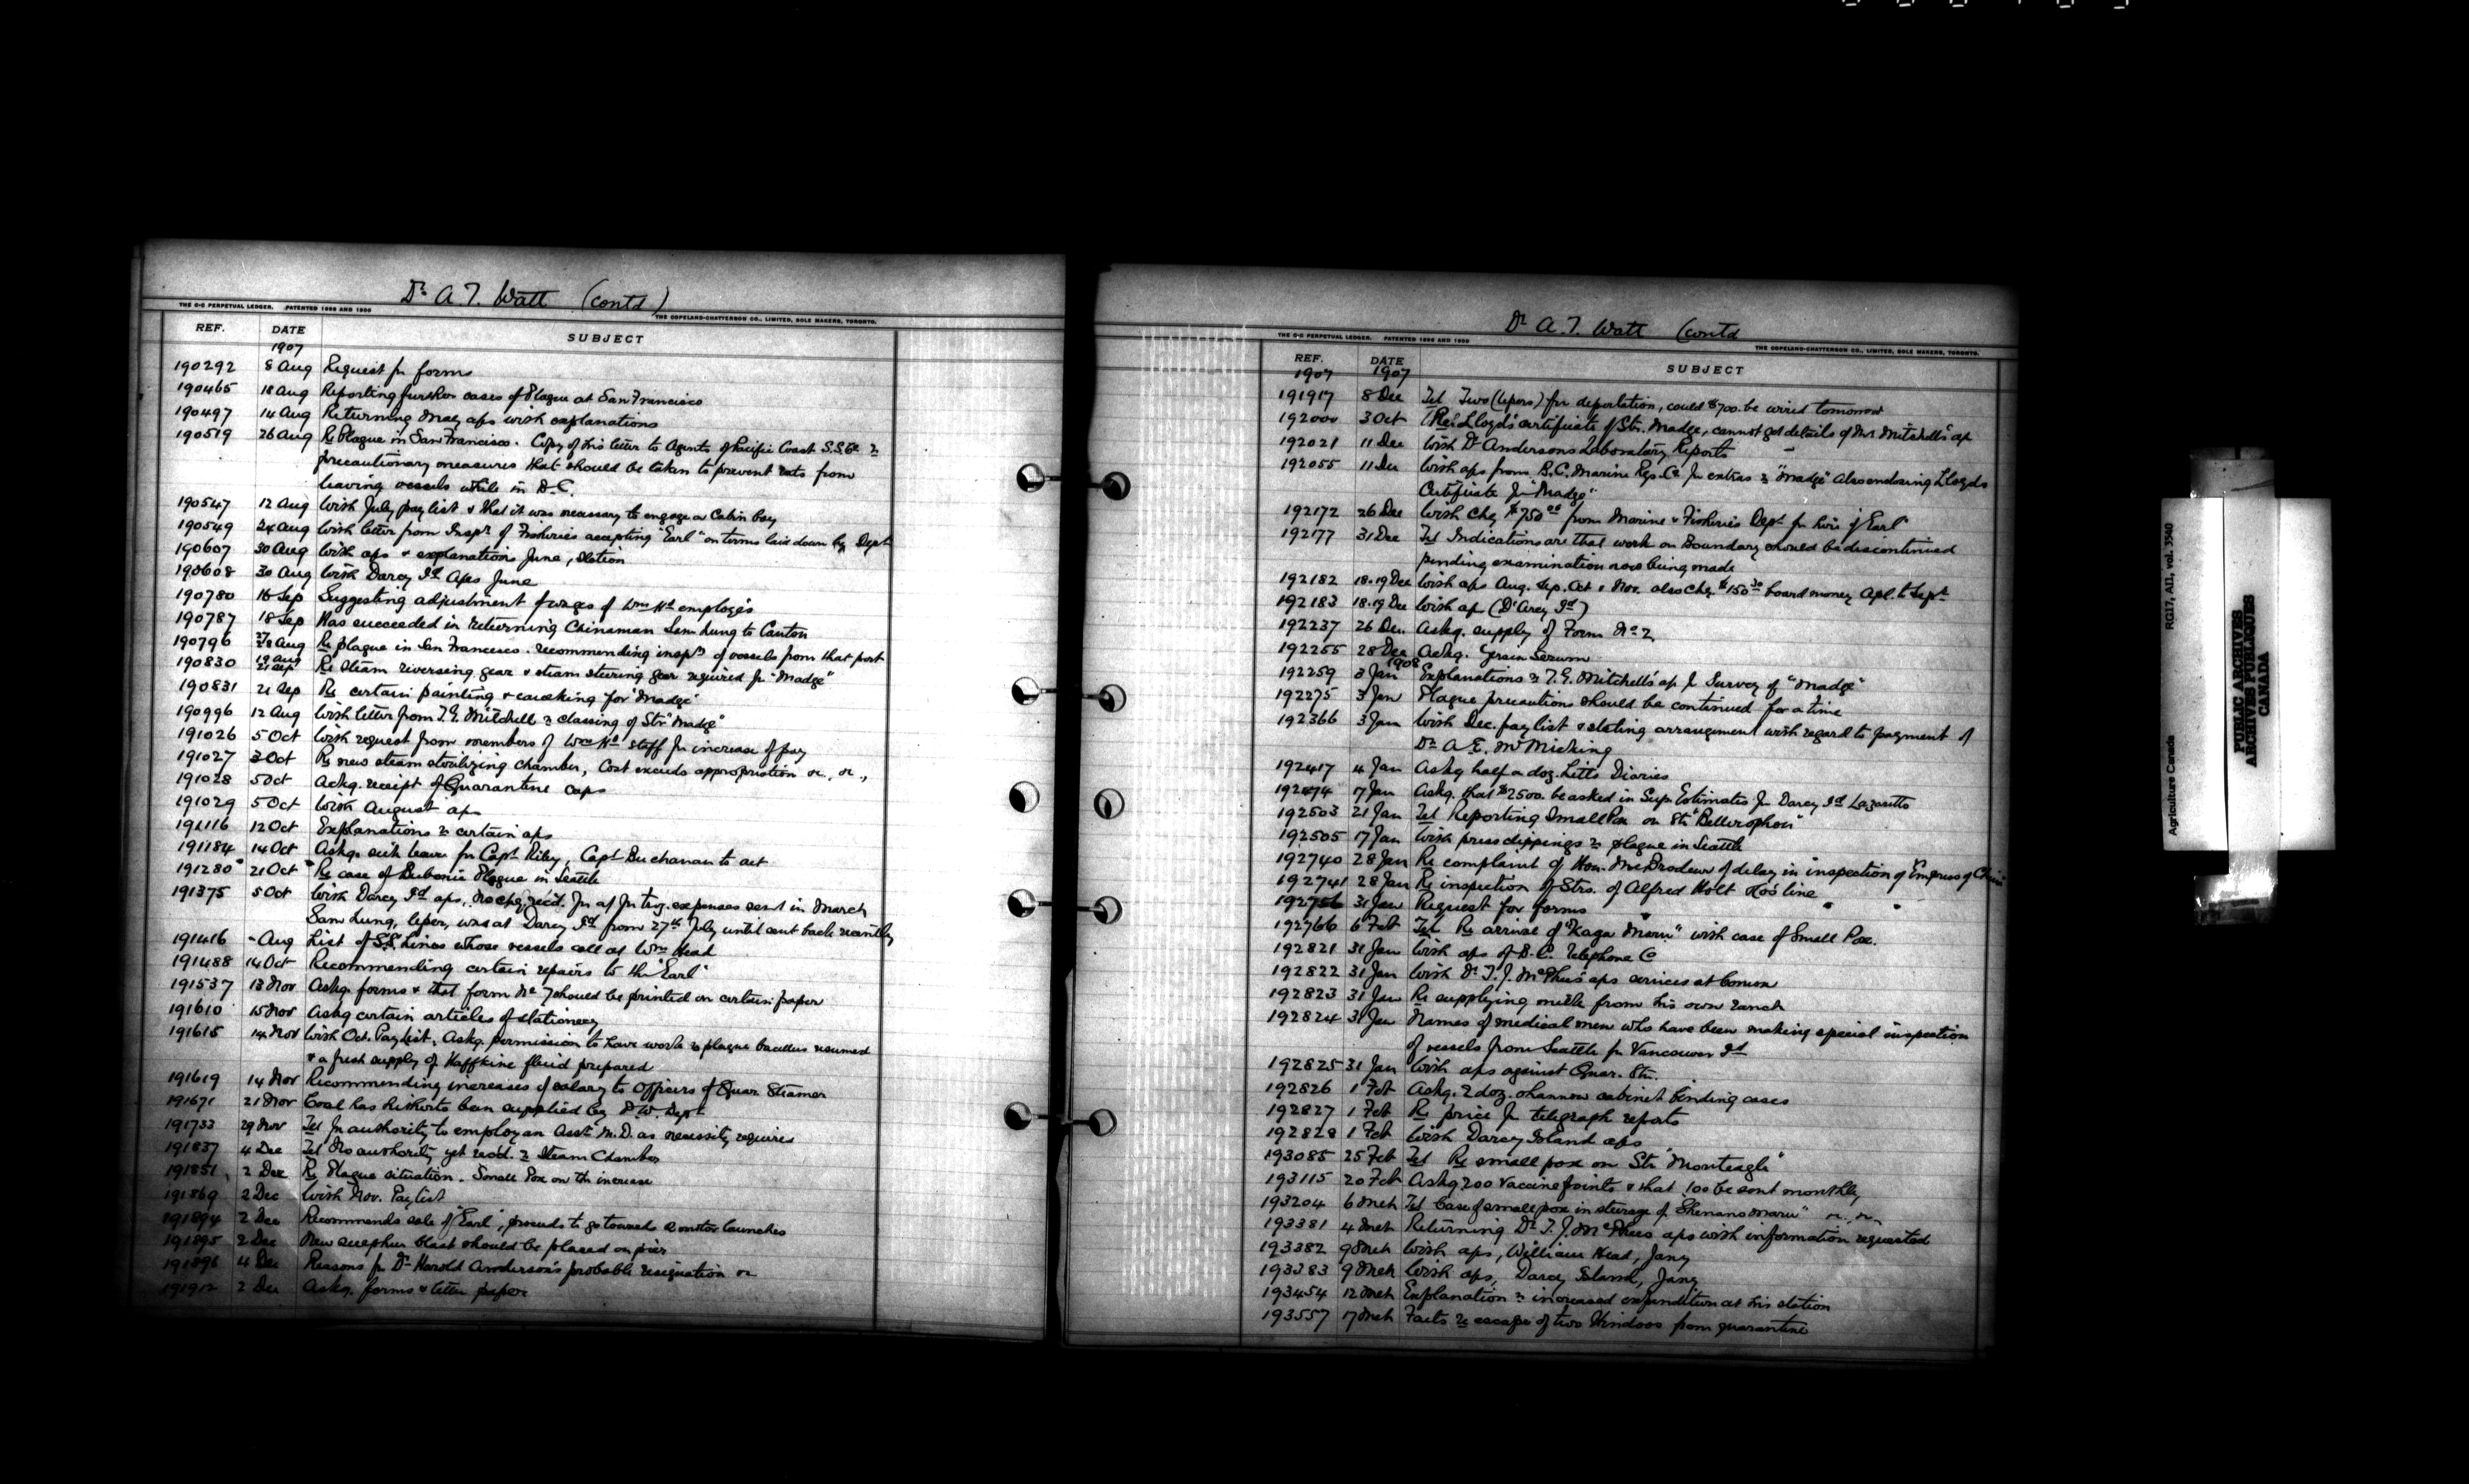 Dr A. T. Watt (contd)
THE C-C PERPETUAL LEDGER. PATENTED 1898 AND 1906
THE COPELAND-CHATTERSON CO., LIMITED, SOLE MAKERS, TORONTO.
REF. DATE SUBJECT
1907
190292 8 Aug Request for forms
190465 18 Aug Reporting further cases of Plague at San Francisco
190497 14 Aug Returning May aps with explanations
190519 26 Aug Re Plague in San Francisco. Copy of his letter to Agents of Pacific Coast S.S. Co re
precautionary measures that should be taken to prevent rats from
leaving vessels while in B.C.
190547 12 Aug With July pay list & that it was necessary to engage a Cabin boy
190549 24 Aug With letter from Inspr of Fisheries accepting "Earl" on terms laid down by Dept
190607 30 Aug With aps & explanations June, station
190608 30 Aug With Darcy Id Aps June
190780 16 Sep Suggesting adjustment of wages of Wm Hd employés
190787 18 Sep Has succeeded in returning Chinaman Sam Lung to Canton
190796 27/28 Aug Re plague in San Francisco. recommending inspn of vessels from that port
190830 19 Aug 21 Sep Re steam reversing gear & steam steering gear required for "Madge"
190831 21 Sep Re certain painting & caulking for "Madge"
190996 12 Aug With letter from T. G. Mitchell re classing of Str "Madge"
191026 5 Oct With request from members of Wm Hd staff for increase of pay
191027 3 Oct Re new steam sterilizing chamber, Cost exceeds appropriation &c, &c.,
191028 5 Oct Ackg. receipt of Quarantine caps
191029 5 Oct With August aps
191116 12 Oct Explanations re certain aps
191184 14 Oct Askg. sick leave for Capt Riley, Capt Buchanan to act
191280 21 Oct Re case of Bubonic Plague in Seattle
191375 5 Oct With Darcy Id aps, No chq. rec'd. for ap for trvg. expenses sent in March
Sam Lung, leper, was at Darcy Id from 27th July until sent back recently
191416 - Aug List of S.S. Lines whose vessels call at Wm Head
191488 14 Oct Recommending certain repairs to the "Earl"
191537 13 Nov Askg. forms & that form No 7 should be printed on certain paper
191610 15 Nov Askg certain articles of stationery
191615 14 Nov With Oct. Pay List, Askg. permission to have work re plague bacillus resumed
& a fresh supply of Haffkine fluid prepared
191619 14 Nov Recommending increases of salary to Officers of Quar Steamer
191671 21 Nov Coal has hitherto been supplied by P.W. Dept.
191733 29 Nov Tel for authority to employ an Asst M.D. as necessity requires
191837 4 Dec Tel No authority yet recd. re Steam Chamber
191851 2 Dec Re Plague situation. Small Pox on the increase
191869 2 Dec With Nov. Pay list
191894 2 Dec Recommends sale of "Earl", proceeds to go towards 2 motor launches
191895 2 Dec New sulphur blast should be placed on pier
191896 4 Dec Reasons for Dr Harold Anderson's probable resignation &c
191912 2 Dec Askg. forms & letter paper
Dr A. T. Watt (contd
THE C-C PERPETUAL LEDGER. PATENTED 1898 AND 1906
THE COPELAND-CHATTERSON CO., LIMITED, SOLE MAKERS, TORONTO.
REF. DATE SUBJECT
1907 1907
191917 8 Dec Tel Two (lepers) for deportation, could $700. be wired tomorrow
192000 3 Oct Re Lloyd's certificate of Str. Madge, cannot get details of Mr Mitchell's ap
192021 11 Dec With Dr Andersons Laboratory Reports
192055 11 Dec With aps from B.C. Marine Rys. Co for extras re "Madge" Also enclosing Lloyds
Certificate for "Madge"
192172 26 Dec With Chq $750.00 from Marine & Fisheries Dept for hire of "Earl"
192177 31 Dec Tel Indications are that work on Boundary should be discontinued
pending examination now being made
192182 18.19 Dec With aps Aug. Sep. Oct & Nov. also chq. $150.30 board money Apl. to Sept
192183 18.19 Dec With ap (D'Arcy Id)
192237 26 Dec. Askg. supply of Form No 2
192255 28 Dec Askg. Yersin Serum
1908
192259 3 Jan Explanations re T. G. Mitchell's ap for Survey of "Madge"
192275 3 Jan Plague precautions should be continued for a time
192366 3 Jan With Dec. pay list & stating arrangement with regard to payment of
Dr A. E. McMicking
192417 4 Jan Askg half a doz. Letts Diaries
192474 7 Jan Askg. that $2500. be asked in Sup. Estimates for Darcy Id Lazaretto
192503 21 Jan Tel Reporting Small Pox on Str "Bellerophon"
192505 17 Jan With press clippings re plague in Seattle
192740 28 Jan Re complaint of Hon. Mr Brodeur of delay in inspection of Empress of China
192741 28 Jan Re inspection of Strs. of Alfred Holt Co's line
192756 31 Jan Request for forms
192766 6 Feb Tel Re arrival of "Kaga Maru" with case of Small Pox.
192821 31 Jan With aps of B.C. Telephone Co
192822 31 Jan With Dr T. J. McPhee's aps services at Comox
192823 31 Jan Re supplying milk from his own ranch
192824 31 Jan Names of medical men who have been making special inspection
of vessels from Seattle for Vancouver Id
192825 31 Jan With aps against Quar. Str.
192826 1 Feb Askg. 2 doz. Shannon cabinet binding cases
192827 1 Feb Re price for telegraph reports
192828 1 Feb With Darcy Island aps
193085 25 Feb Tel Re small pox on Str "Monteagle"
193115 20 Feb Askg 200 vaccine points & that 100 be sent monthly
193204 6 Mch Tel Case of small pox in steerage of "Shinano Maru" &c., &c.
193381 4 Mch Returning Dr T. J. McPhees aps with information requested
193382 9 Mch With aps, William Head, Jany
193383 9 Mch With aps, Darcy Island, Jany
193454 12 Mch Explanation re increased expenditure at his station
193557 17 Mch Facts re escape of two Hindoos from quarantine
Agriculture Canada RG17, AII, vol. 3540
PUBLIC ARCHIVES
ARCHIVES PUBLIQUES
CANADA